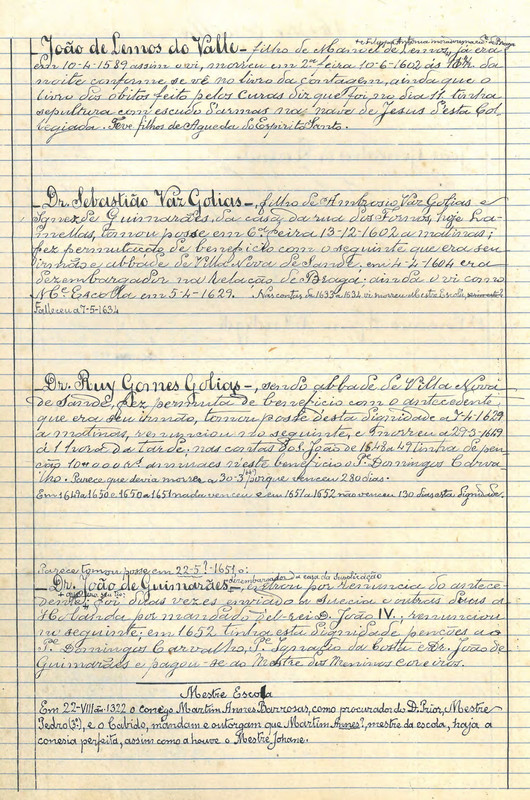 + e Filippa Antonia moradores na cid.e de Braga
João de Lemos do Valle – filho de Manoel de Lemos, já era
em 10-4-1589 assim o vi, morreu em 2ª feira 10-6-1602 ás da
noite conforme se vê no livro da contagem, ainda que o
livro dos obitos feito pelos curas diz que foi no dia 11, tinha
sepultura com escudo d'armas na nave de Jesus d'esta Col-
legiada. Teve filhos de Agueda do Espirito Santo.
Dr. Sebastião Vaz Golias –, filho de Ambrosio Vaz Golias e
Ignez de Guimarães, da casa da rua dos Fornos, hoje La-
mellas, tomou posse em 6ª feira 13-12-1602 a matinas;
fez permutação de beneficio com o seguinte que era seu
irmão e abbade de Villa Nova de Sande, em 4-4-1604 era
dezembargador na Relação de Braga: ainda o vi como
M.e Escolla em 5-4-1629. Nas contas de 1633 a 1634 vi morreu Mestre Escolla,
Falleceu a 7-5-1634
Dr. Ruy Gomes Golias –, sendo abbade de Villa Nova
de Sande, fez permuta de beneficio com o antecedente,
que era seu irmão, tomou posse desta dignidade a 7-4-1629
a matinas, renunciou no seguinte, e morreu a 29-3-1649
á 1 hora da tarde; nas contas do S. João de 1648 a 49 tinha de pen-
ção 10000 rs. annuaes n'este beneficio o P.e Domingos Carva-
lho. Parece que devia morrer a 30-3 porque venceu 280 dias.
Em 1649 a 1650 e 1650 a 1651 nada venceu e em 1651 a 1652 não venceu 130 dias esta dignidade.
Parece tomou posse em 22-5?-1651 o:
dezembargador da casa da supplicação
– Dr. João de Guimarães –, entrou por renuncia do antece-
+ que era seu tio;
dente, foi duas vezes enviado a Suecia e outras duas a
Hollanda por mandado del-rei D. João IV; renunciou
no seguinte; em 1652 tinha esta dignidade penções ao
P.e Domingos Carvalho, P.e Ignacio da Costa e Dr. João de
Guimarães e pagou-se ao Mestre dos Meninos coreiros.
Mestre Escola
Em 22-VIII-1322 o conego Martim Annes Barrosas, como procurador do D. Prior, Mestre
Pedro (2º), e o Cabido, mandam e outorgam que Martim Annes?, mestre da escola, haja a
conesia perfeita, assim como a houve o Mestre Johane.